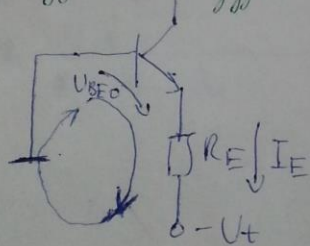 U_BEO
R_E I_E
-Ut